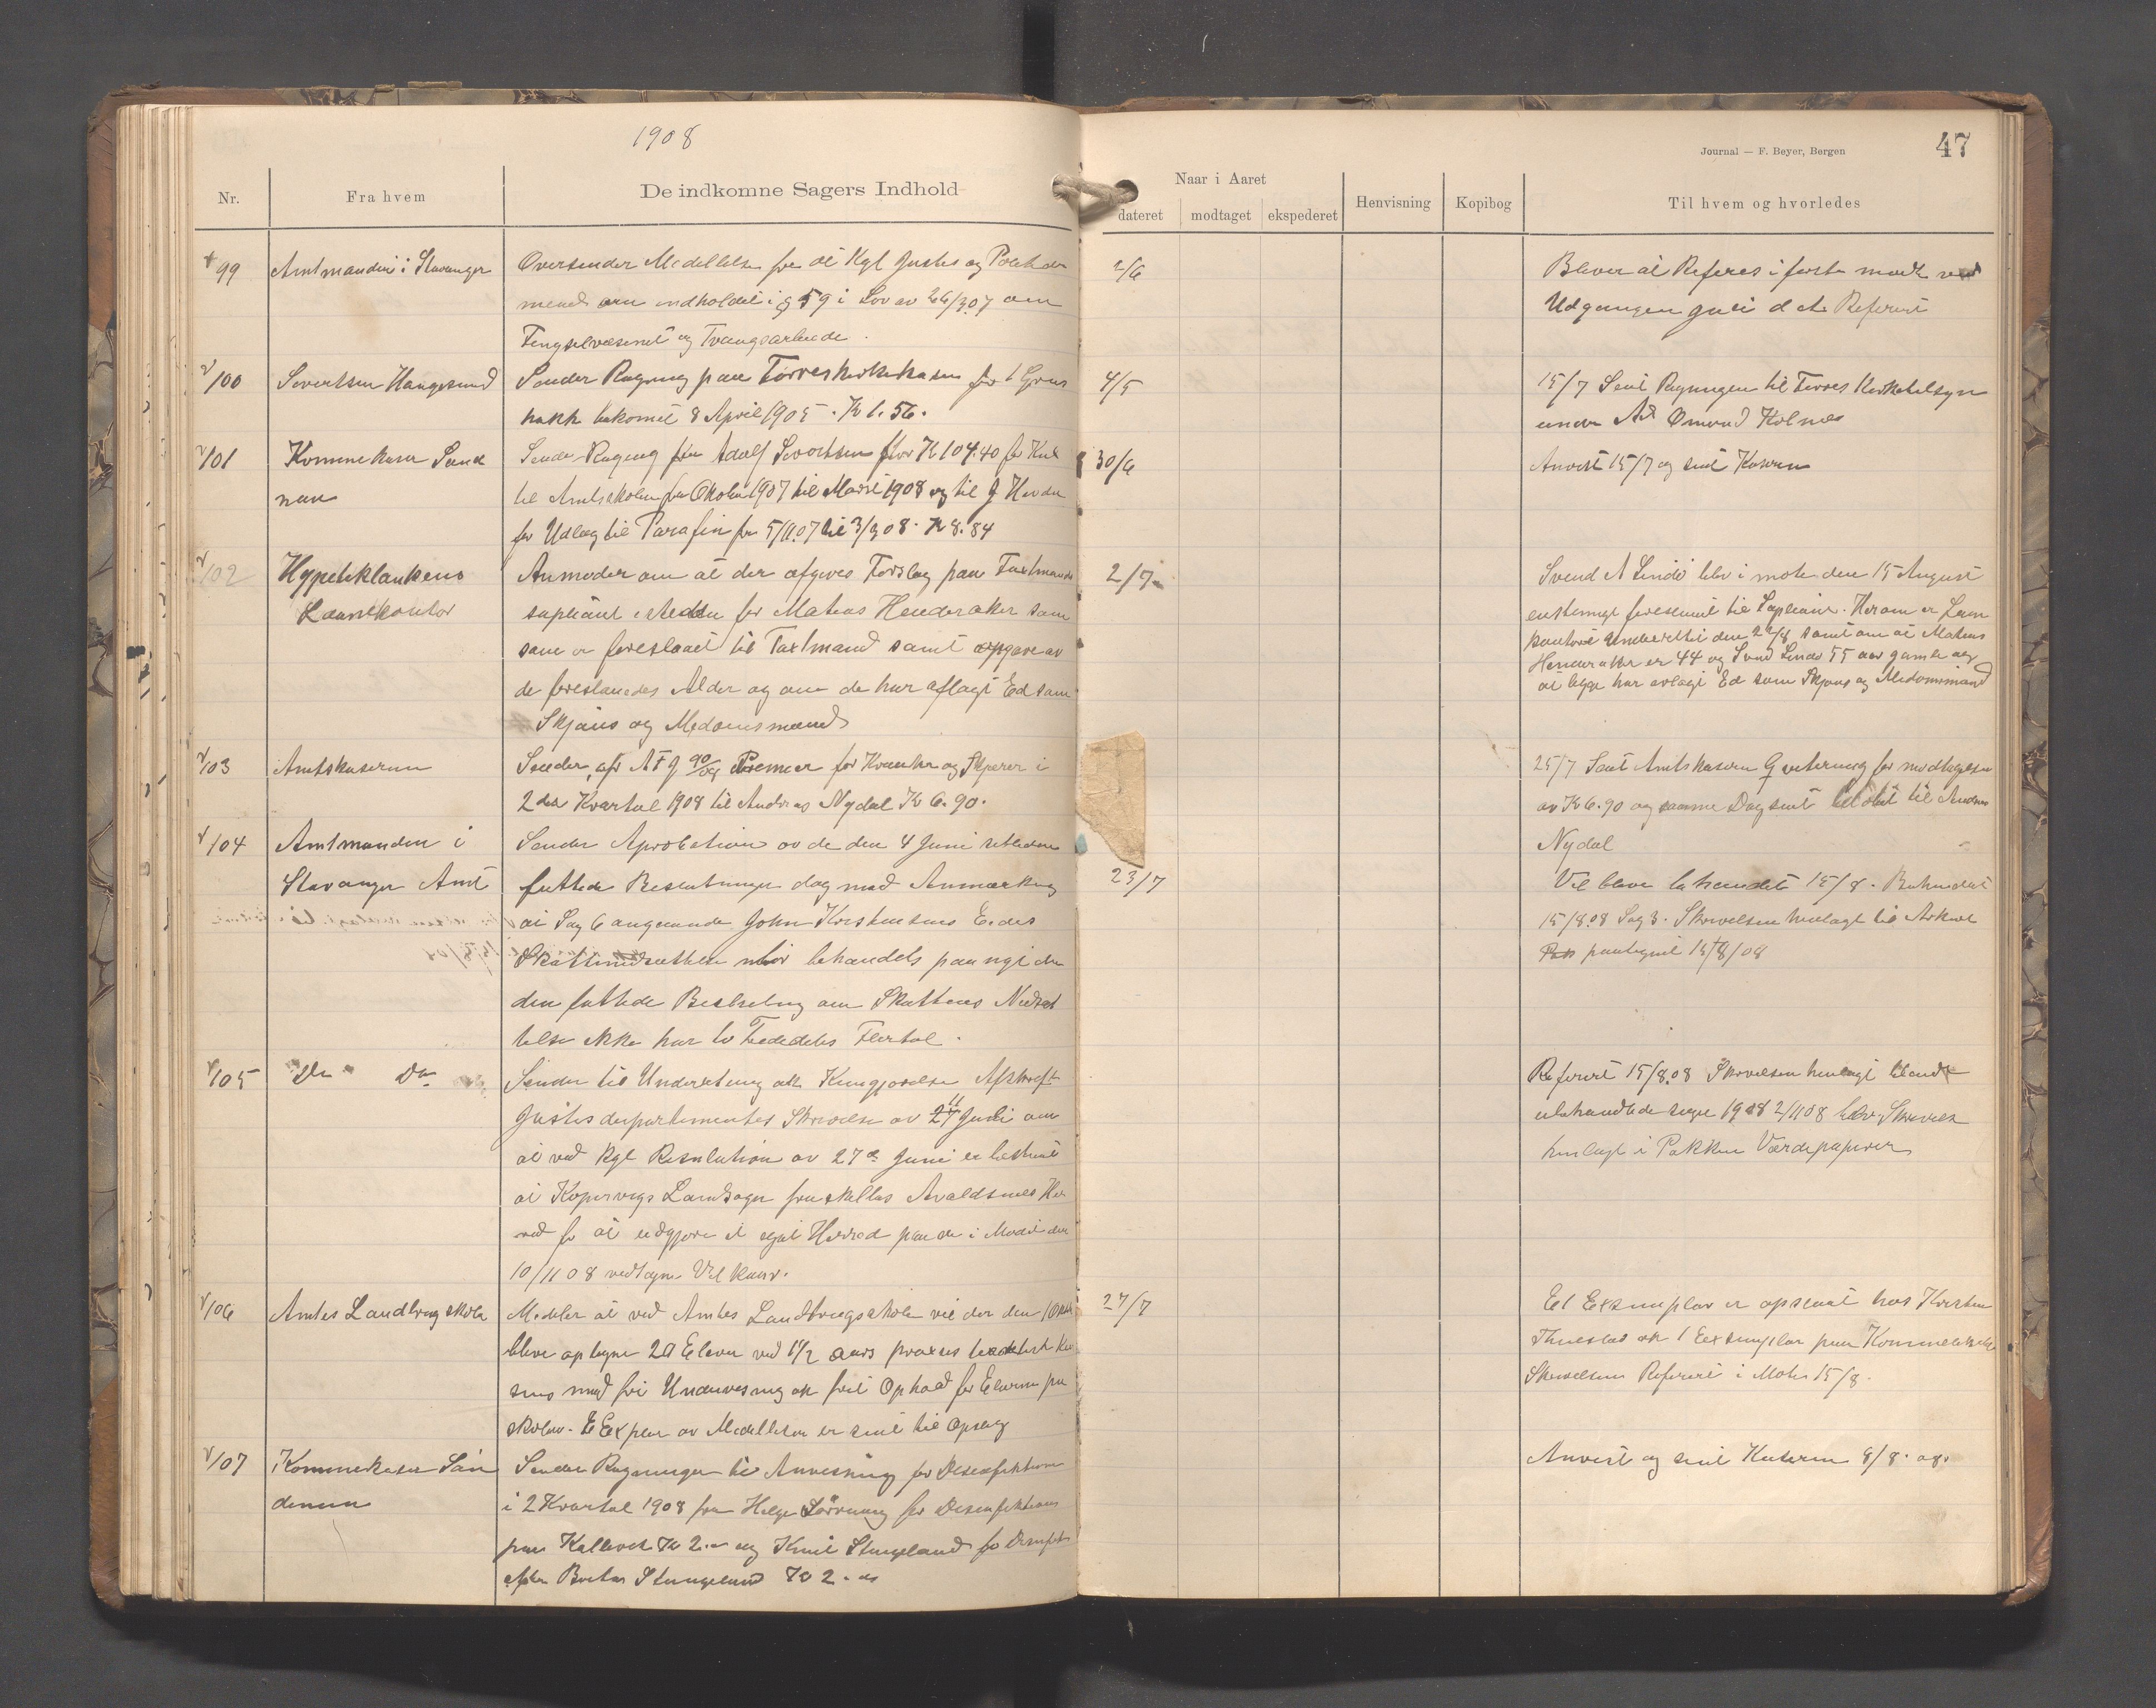 1908
Journal — F. Beyer, Bergen
47
Nr.
Fra hvem
De indkomne Sagers Indhold
Naar i Aaret
dateret
modtaget
ekspederet
Henvisning
Kopibog
Til hvem og hvorledes
99
Amtmanden i Stavanger
Oversender Meddelelse fra de Kgl Justis og Politide
ment om indholdet i § 59 i Lov av 26/3 07 om
Fengselvæsenet og Tvangsarbeide.
2/6
Bliver at Referes i første møde ved
Udgangen juli d A Referert
100
Severtsen Haugesund
Sender Regning paa Torvestadkirkekasen for 1 Grus
hakk bekomet 8 April 1905. Kr 1.56.
4/5
15/7 Sent Regningen til Torves Kirketilsyn
under Adr Omund Kolnes
101
Kommekaser Sund
nan
Sender Regning fra Adolf Severtsen for Kr 104.40 for Kul
til Amtskolen fra Oktober 1907 til Marst 1908 og til J Hovda
for Udlæg til Parafin fra 5/11.07 til 3/3 08. Kr 8.84
30/6
Anvist 15/7 og sent Kaseren
102
Hypotekbankens
Laanekontor
Anmoder om at der afgives Forslag paa Taxtmands
supleant i Stedden for Matias Henderaker som
som er foreslaaet til Taxtmand samt opgave av
de foreslaaedes Alder og om de har aflagt Ed som
Skjøns og Meddomsmænd
2/7
Svend A Lindø blev i møte den 15 August
enstemigt forestemt til Supleant. Herom er Laan
kontoret Underettet den 22/8 samt om at Matias
Henderaker er 44 og Svend Lindø 55 aar gamle og
at begge har avlagt Ed som Skjøns og Medomsmænd
103
Amtskaseren
Sender, afr A F J 90/08 Premier for Kraaker og Skjærer i
2det Kvartal 1908 til Andreas Nydal Kr 6.90.
25/7 Sent Amtskaseren Qvitering for modtagelsen
av Kr 6.90 og samme Dag sent beløbet til Andreas
Nydal
104
Amtmanden i
Stavanger Amt
Sender Aprobation av de den 4 Juni
fattede Beslutninger dog med Anmærkning
at Sag 6 angaaende John Kristensens Eides
Skattenedsættelse maa behandels paa nyt da
den fattede Beslutning om Skattens Nedsæt
telse ikke har to Trededeles Flertal.
23/7
Vil blive behandlet 15/8. Behandlet
15/8.08 Sag 3. Skrivelsen henlagt til Arkivet
paategnet 15/8/08
105
Do Do
Sender til Underetning og Kungjørelse Afskrift
Justisdepartementets Skrivelse av 11 Juli om
at ved Kgl Resolution av 27de Juni er bestemt
at Kopervigs Landsogn fraskilles Avaldsnes Her
red for at udgjøre et eget Herred paa de i Møde den
10/11 08 vedtagne Vilkaar.
Referert 15/8.08 Skrivelsen henlagt blandt
ubehandlede sager 1908 2/11 08 blev Skrivelsen
henlagt i Pakken Værdipapirer
106
Amtes Landbrugskole
Medeler at ved Amtes Landbrugsskole vil der den 1 Okt
blive optagne 20 Elever ved 1½ aars praxtis
sus med fri Undervisning og frit Ophold for Elevene paa
skolen. Et Explar av Meddellelsen er sent til Opslag
27/7
Et Exsemplar er opslaat hos Kristen
Thuestad og 1 Eexsemplar paa Kommelokalet
Skrivelsen Referert i Møte 15/8.
107
Kommekaser Sun
denan
Sender Regninger til Anvisning for Desenfektion
i 2 Kvartal 1908 fra Helge Sørvaag for Desenfektion
paa Kallevik Kr 2.– og Knut Stangeland for Desenfek
efter Berta Stangeland Kr 2.–
Anvist og sent Kaseren 8/8.08.